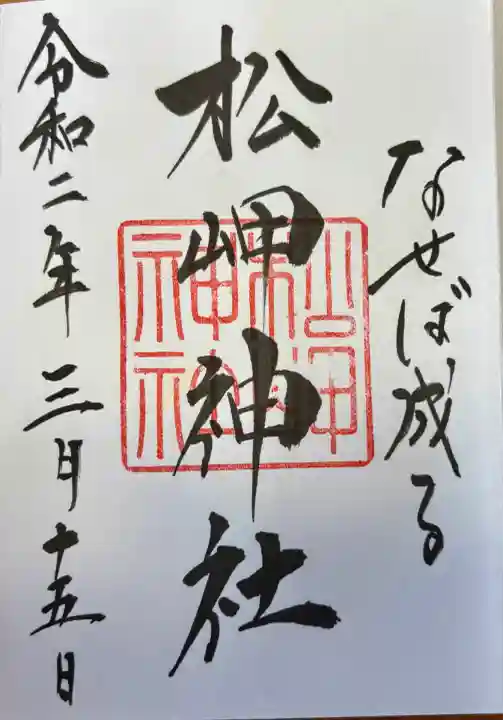 なせば成る
松岬神社
松岬神社
令和二年三月十五日